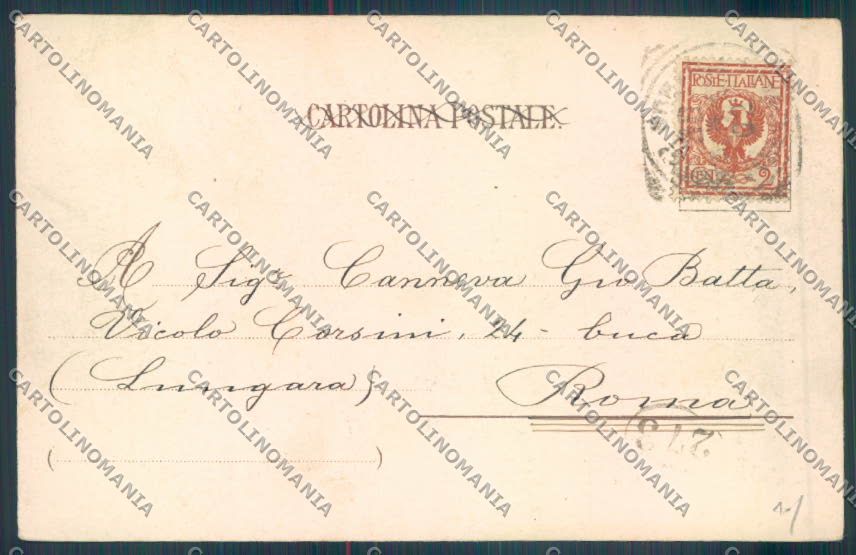 CARTOLINA POSTALE.
POSTE·ITALIANE
CEN. 2
A Sigr Canneva Gio Batta,
Vicolo Corsini, 24 - buca
(Lungara)
Roma
CARTOLINOMANIA